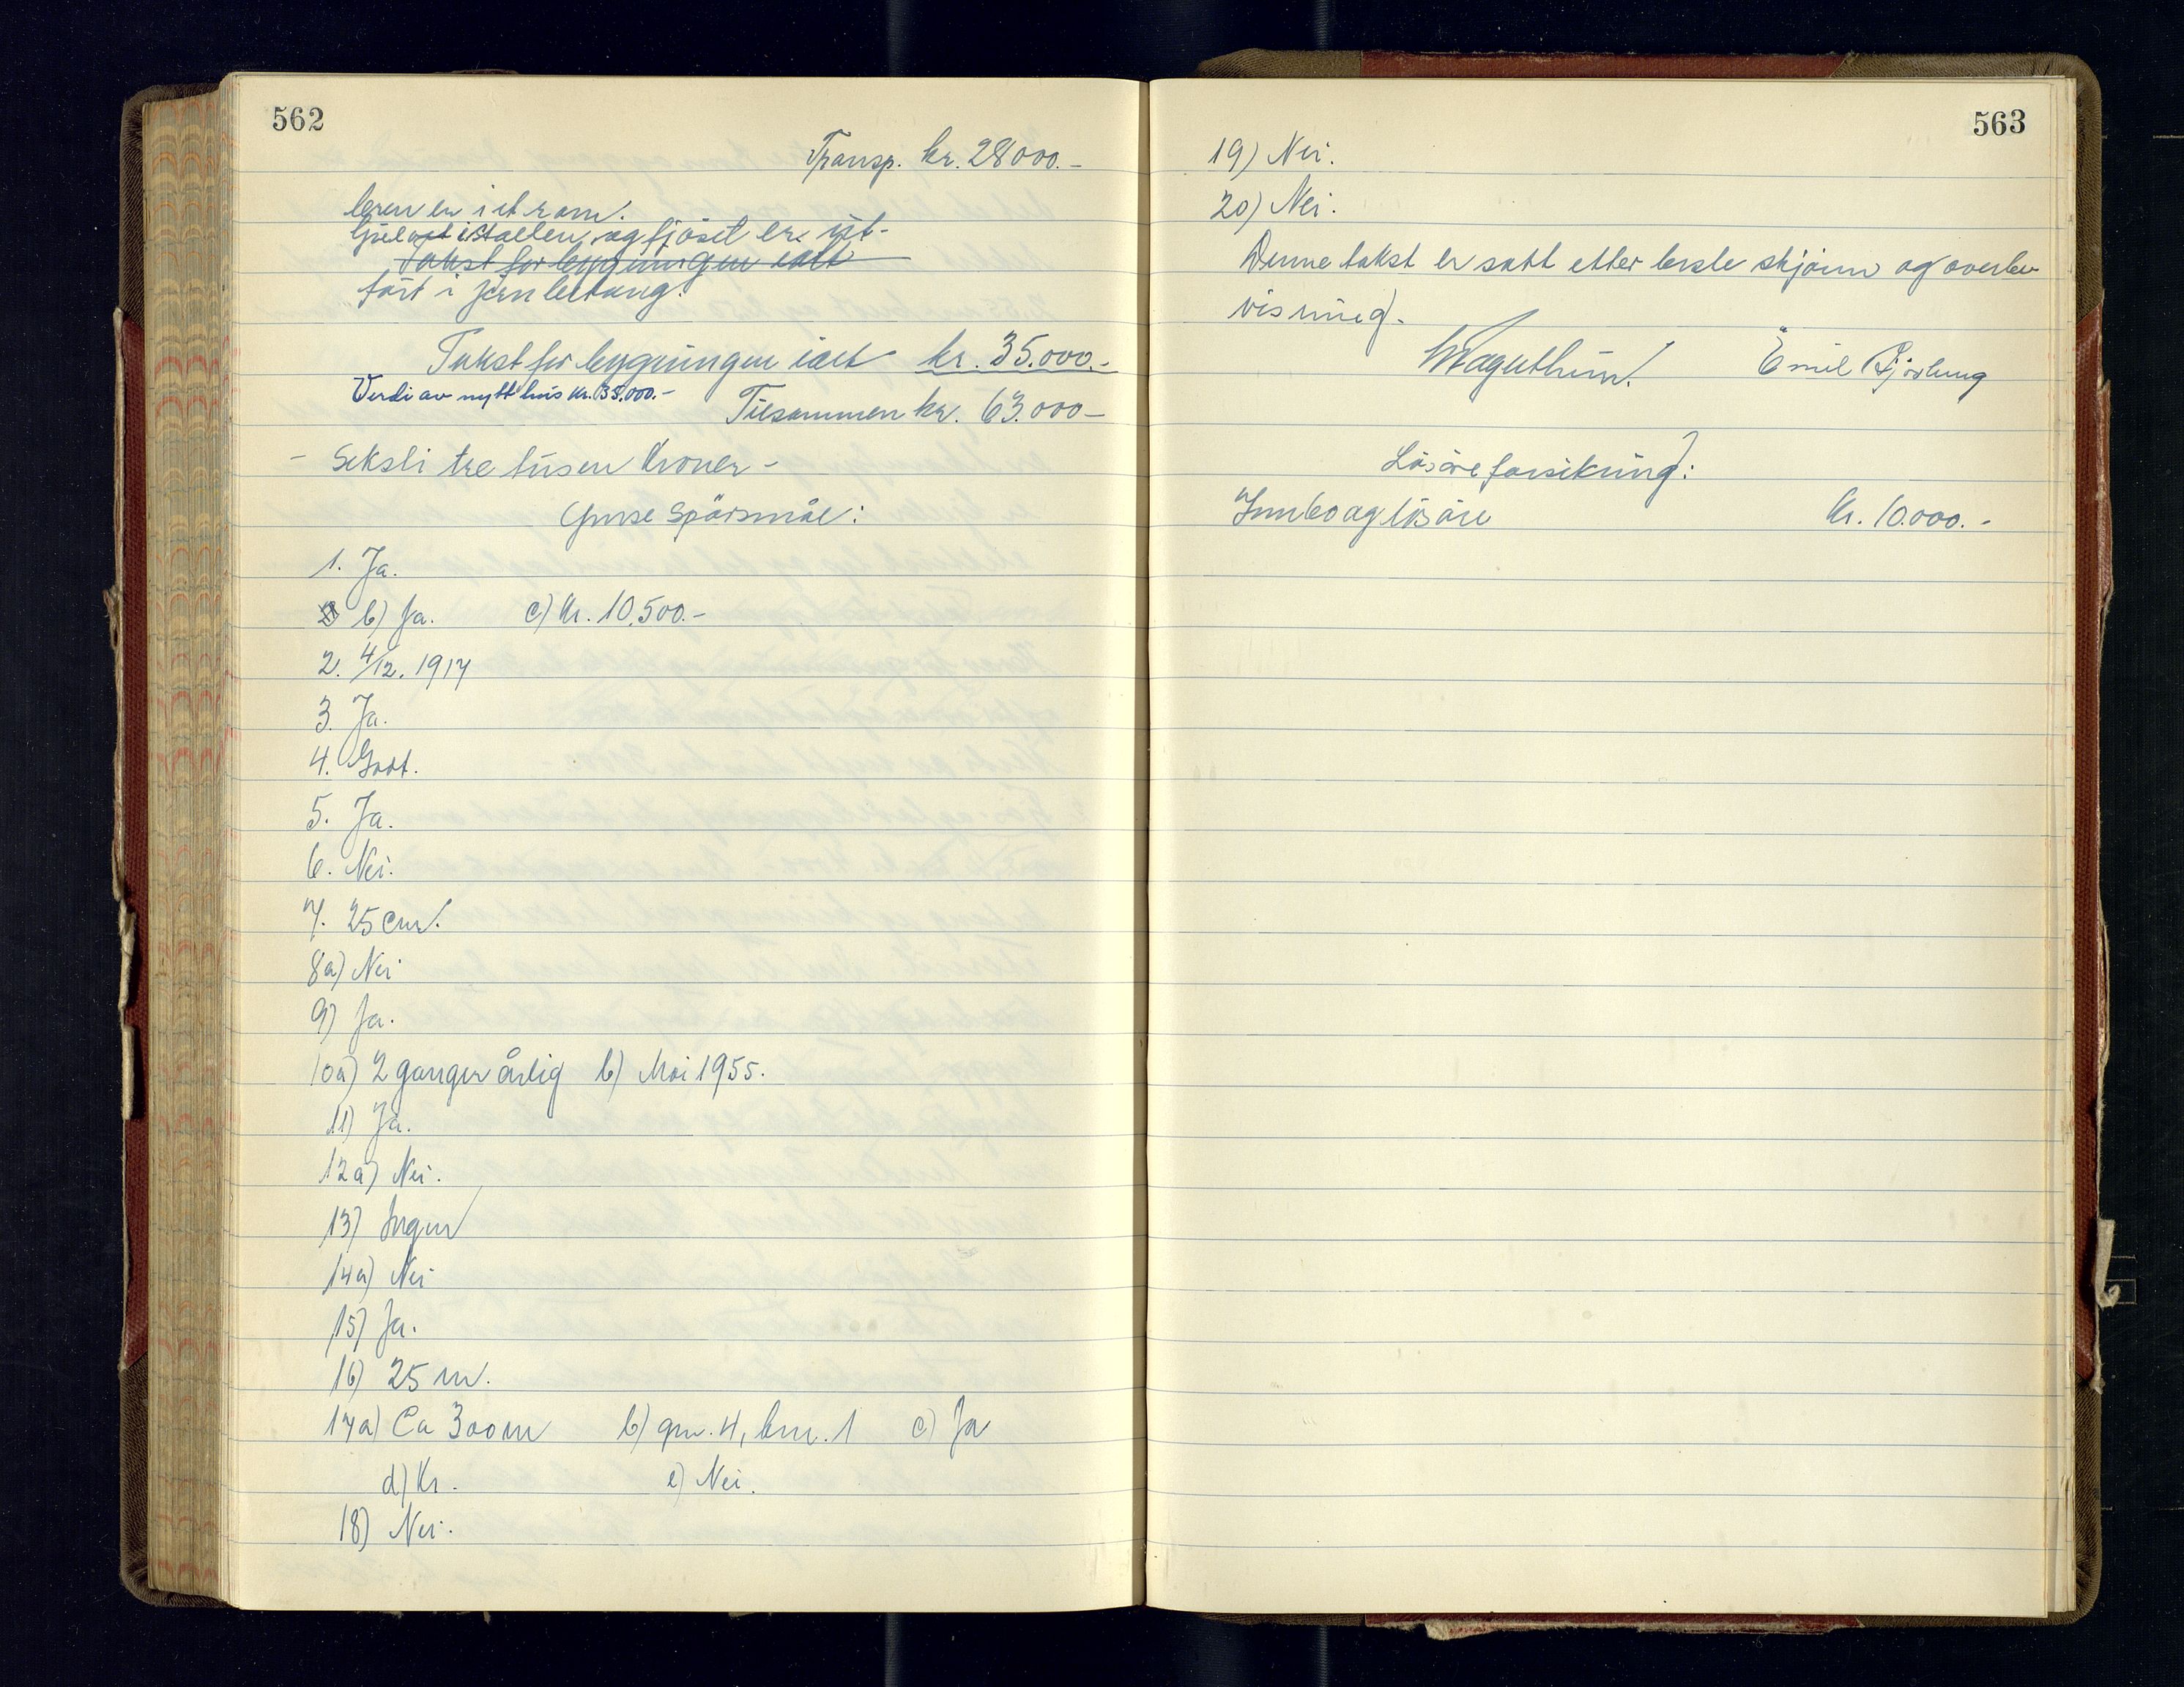 562
Transp. kr. 28000.-
leren er i et rom.
Gulvet i stallen og fjöset er ut-
Takst for bygningen ialt
fört i jernbetong.
Takst for bygningen ialt kr. 35.000.-
Verdi av nytt hus kr. 35.000.-
Tilsammen kr. 63.000-
- Seksti tre tusen kroner -
Spörsmål:
1. Ja.
b) Ja. c) Kr. 10.500.-
2. 4/12. 1917
3. Ja.
4. Godt.
5. Ja.
6. Nei.
7. 25 cm.
8a) Nei
9) Ja.
10a) 2 ganger årlig b) Mai 1955.
11) Ja.
12a) Nei.
13) Ingen
14a) Nei
15) Ja.
16) 25 m.
17a) Ca 300 m b) gnr. 4, bnr. 1 c) Ja
d) Kr. e) Nei.
18) Nei.
563
19) Nei.
20) Nei.
Denne takst er satt etter beste skjönn og overbe
visning.
Emil
Lösöreforsikring:
Innbo og lösöre kr. 10.000.-